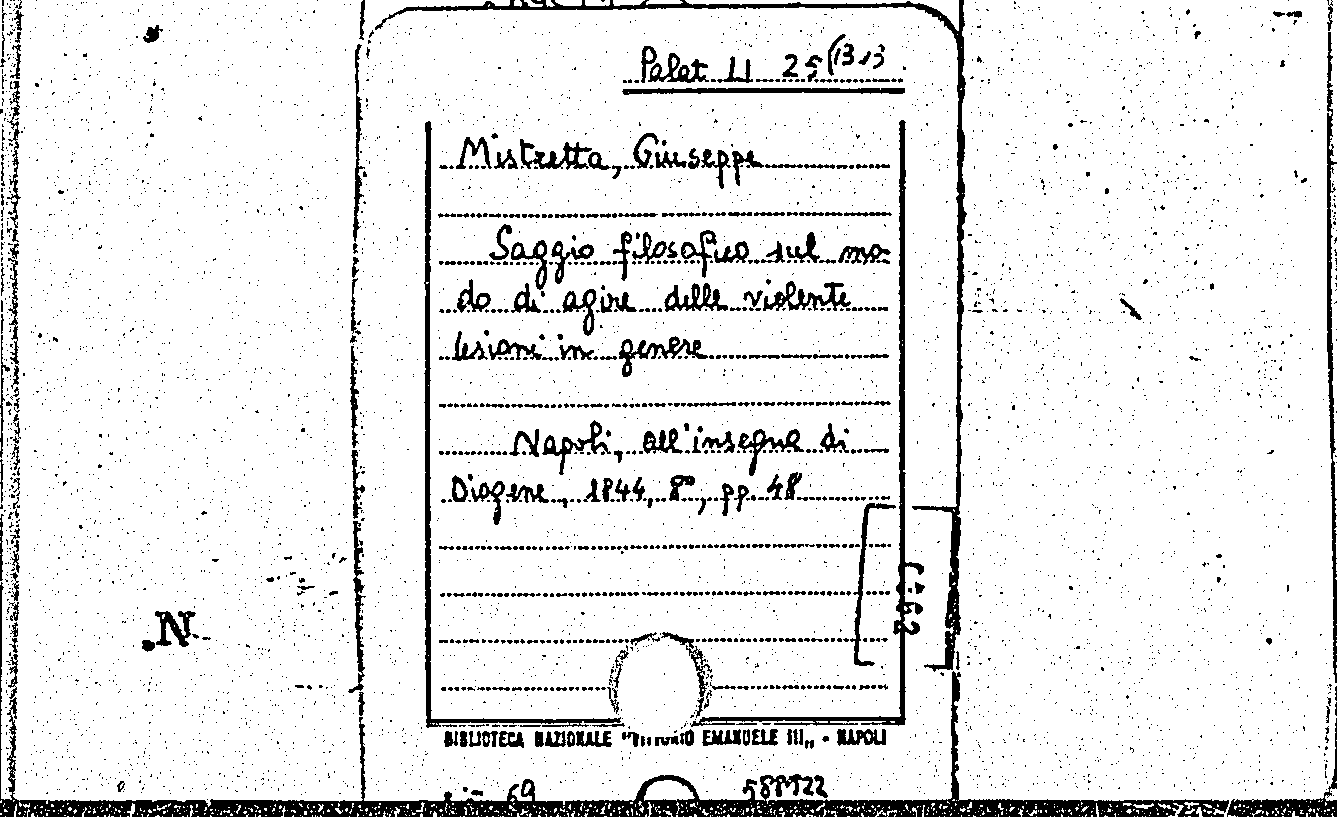 Palat LI 25(13
Mistretta, Giuseppe
Saggio filosofico sul mo-
do di agire delle violente
lesioni in genere
Napoli, all'insegna di
Diogene, 1844, 8°, pp. 48
N.
BIBLIOTECA NAZIONALE "VITTORIO EMANUELE III„ - NAPOLI
69